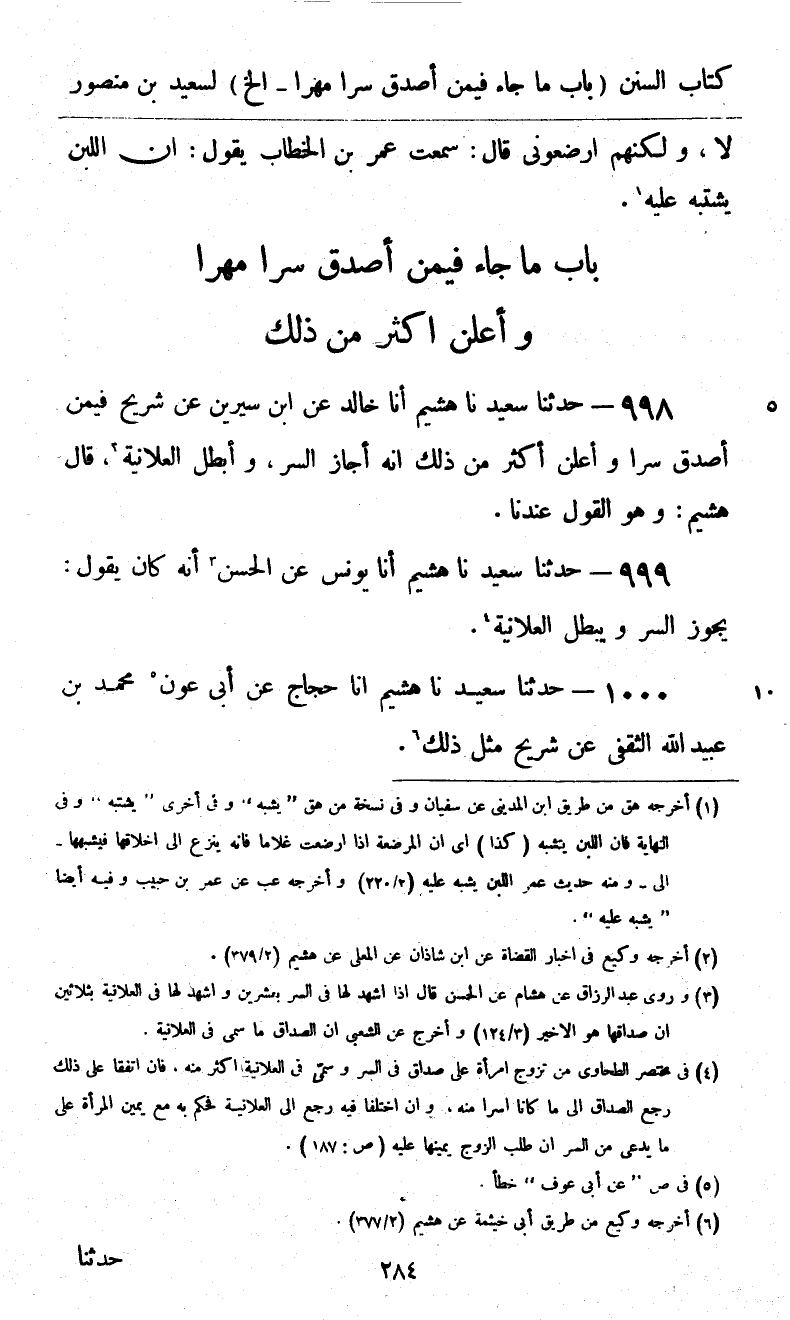 كتاب السنن ( باب ما جاء فيمن أصدق سرا مهرا ـ الخ ) لسعيد بن منصور
لا ، و لكنهم ارضعونى قال : سمعت عمر بن الخطاب يقول : ان اللبن
يشتبه عليه١ .
باب ما جاء فيمن أصدق سرا مهرا
و أعلن اكثر من ذلك
٩٩٨ — حدثنا سعيد نا هشيم أنا خالد عن ابن سيرين عن شريح فيمن ٥
أصدق سرا و أعلن أكثر من ذلك انه أجاز السر ، و أبطل العلانية٢ ، قال
هشيم : و هو القول عندنا .
٩٩٩ — حدثنا سعيد نا هشيم أنا يونس عن الحسن٣ أنه كان يقول :
يجوز السر و يبطل العلانية٤ .
١٠٠٠ — حدثنا سعيد نا هشيم انا حجاج عن أبى عون٥ محمد بن ١٠
عبيد الله الثقفى عن شريح مثل ذلك٦ .
(١) أخرجه هق من طريق ابن المدينى عن سفيان و فى نسخة من هق ”يشبه“ و فى أخرى ”يشتبه“ و فى
النهاية فان اللبن يتشبه ( كذا ) اى ان المرضعة اذا ارضعت غلاما فانه ينزع الى اخلاقها فيشبهها ـ
الى ـ و منه حديث عمر اللبن يشبه عليه (٢٢٠/٢) و أخرجه عب عن عمر بن حبيب و فيه أيضا
”يشبه عليه“ .
(٢) أخرجه وكيع فى اخبار القضاة عن ابن شاذان عن المعلى عن هشيم (٣٧٩/٢) .
(٣) و روى عبد الرزاق عن هشام عن الحسن قال اذا اشهد لها فى السر بعشرين و اشهد لها فى العلانية بثلاثين
ان صداقها هو الاخير (١٢٤/٣) و أخرج عن الشعبى ان الصداق ما سمى فى العلانية .
(٤) فى مختصر الطحاوى من تزوج امرأة على صداق فى السر و سمّى فى العلانية اكثر منه ، فان اتفقا على ذلك
رجع الصداق الى ما كانا اسرا منه ، و ان اختلفا فيه رجع الى العلانية فحكم به مع يمين المرأة على
ما يدعى من السر ان طلب الزوج يمينها عليه ( ص : ١٨٧ ) .
(٥) فى ص ”عن أبى عوف“ خطأ .
(٦) أخرجه وكيع من طريق أبى خيثمة عن هشيم (٣٧٧/٢) .
حدثنا
٢٨٤